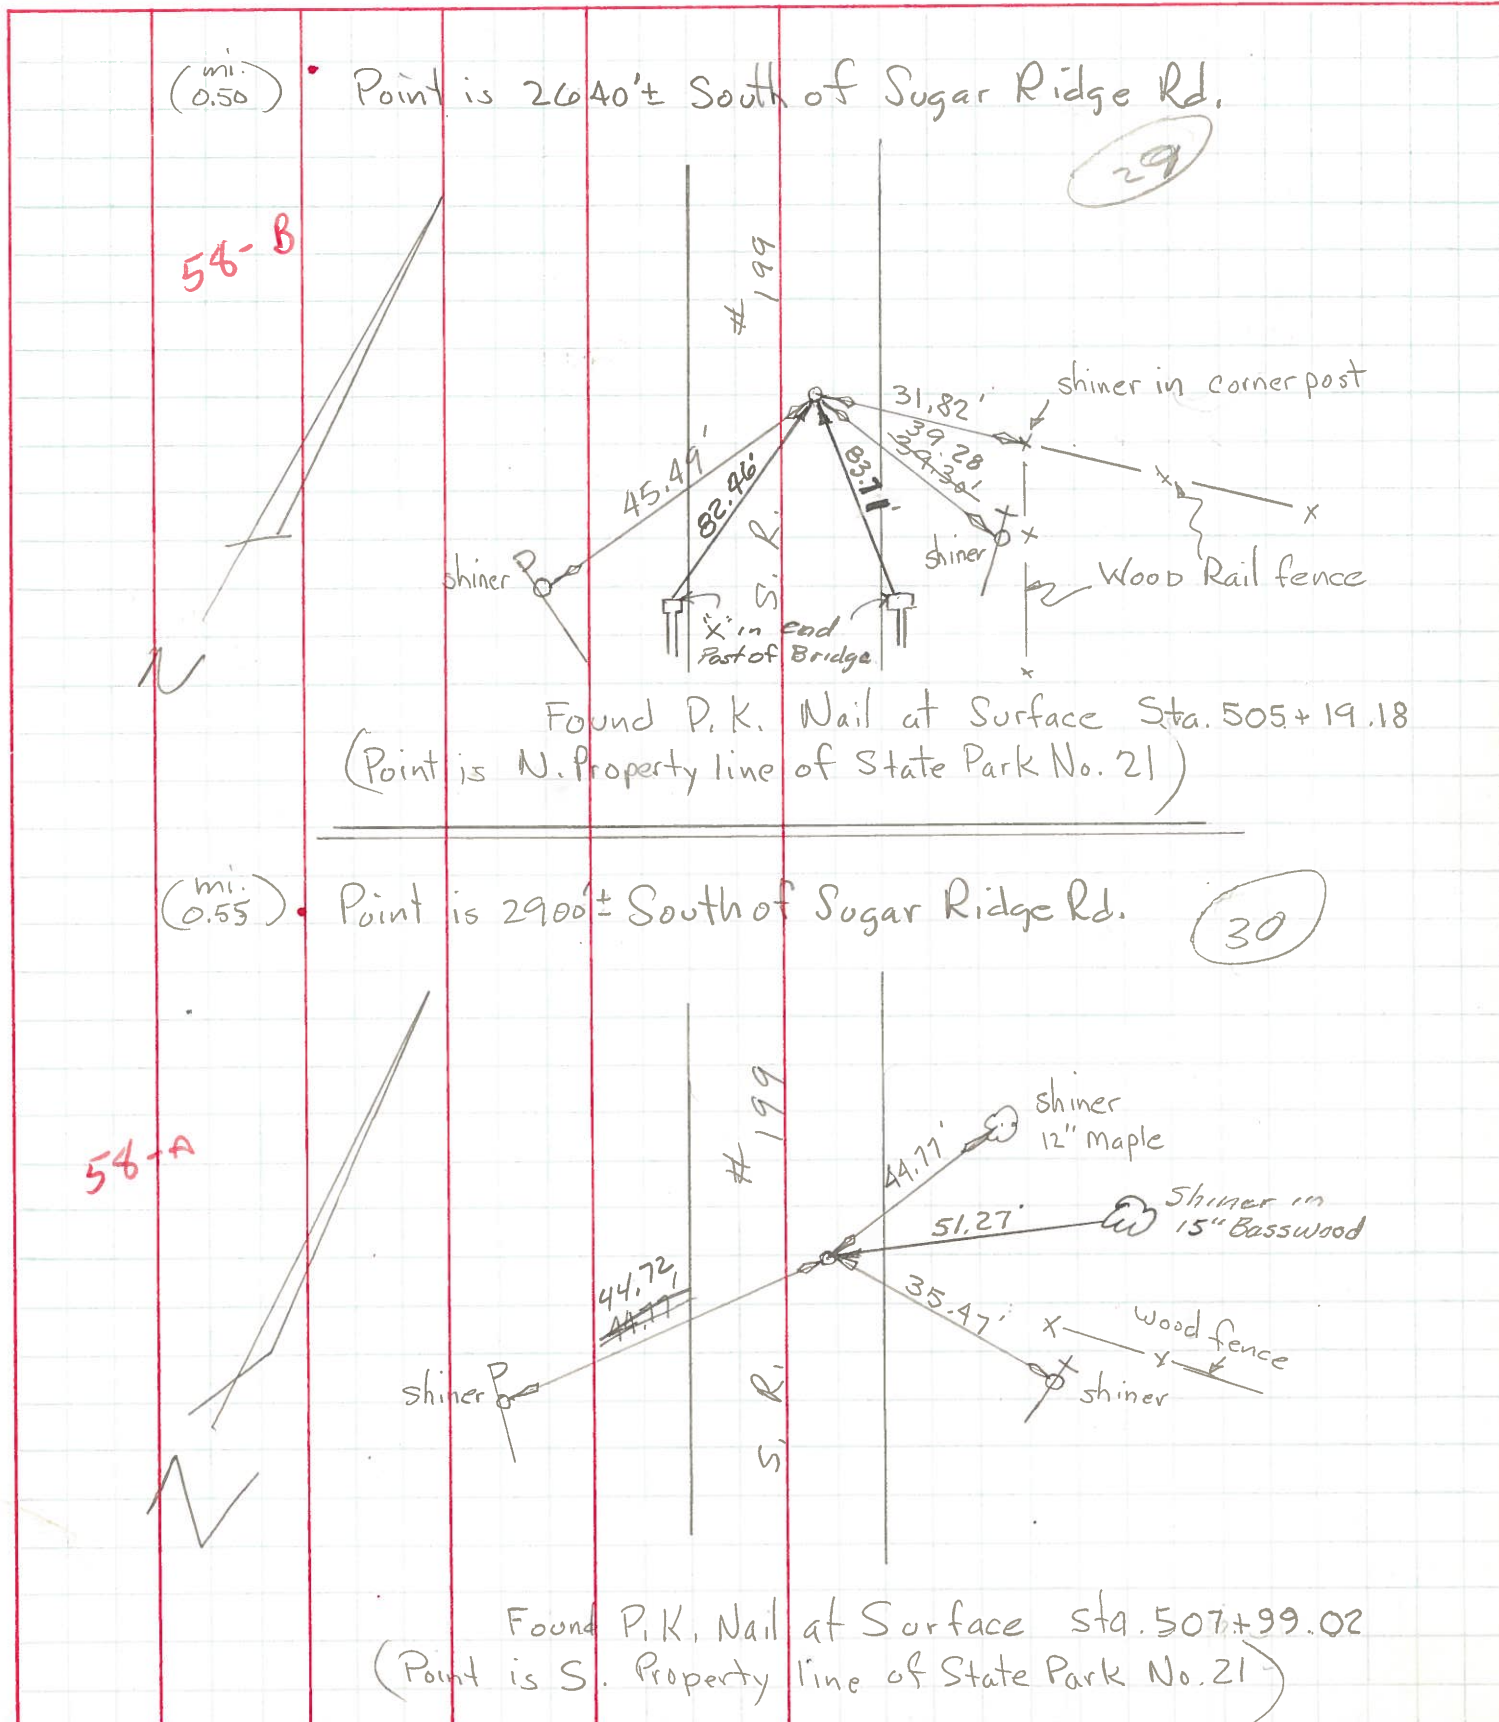 (mi. 0.50) • Point is 2640'± South of Sugar Ridge Rd.
29
58-B
# 199
shiner in corner post
31.82'
39.28
39.30'
45.49'
82.46'
83.71'
S. R.
shiner
shiner
Wood Rail fence
"X" in end
Post of Bridge
N
Found P.K. Nail at Surface Sta. 505+19.18
(Point is N. Property line of State Park No. 21)
(mi. 0.55) • Point is 2900'± South of Sugar Ridge Rd.
30
# 199
shiner
12" Maple
44.77'
58-A
Shiner in
15" Basswood
51.27'
44.72'
44.77'
35.47'
Wood fence
shiner
shiner
S. R.
N
Found P.K. Nail at Surface Sta. 507+99.02
(Point is S. Property line of State Park No. 21)